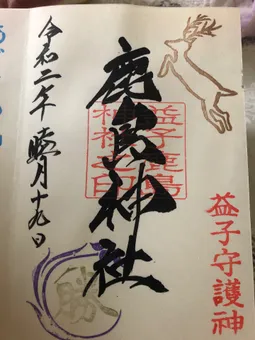 益子守護神
鹿島神社
益子鹿島
令和二年睦月十九日
勝